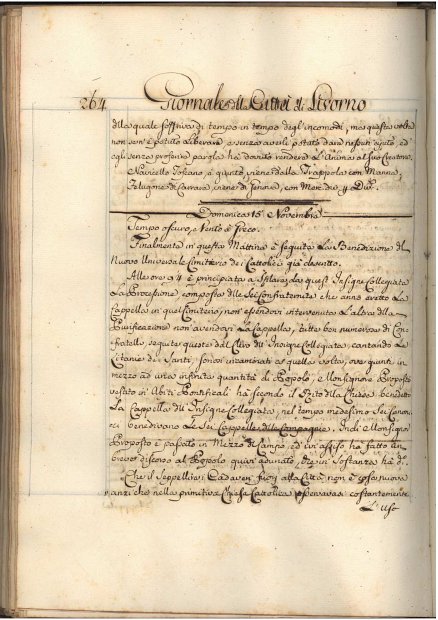 264 Giornale della Città di Livorno
dalla quale soffriva di tempo in tempo degl'incomodi, ma questa volta
non sen'è potuto liberare, e senza avergli potuto dare nessun ajuto, ed
egli senza proferire parola ha dovuto rendere l'Anima al suo Creatore.
Navicello Toscano, è giunto, viene dalla Trappola con Manna,
Felugone di Carrara, viene di Genova, con Mercanzie p. Div.
Domenica 15 Novembre
Tempo oscuro, e Vento à Greco.
Finalmente in questa Mattina è seguita La Benedizione del
Nuovo Universale Cimiterio dei Cattolici già descritto.
Alle ore 9 4 è principiata a sfilare da quest'Insigne Collegiata
La Processione composta delle Sei Confraternite che anno eretto La
Cappella in quel Cimiterio, non essendovi intervenuta L'altra della
Purificazione non avendovi La Cappella, tutte ben numerose di Con-
fratelli, seguite queste dal Clero dell'Insigne Collegiata, cantando Le
Litanie dei Santi, sonosi incamminate a quella volta, ove giunti in
mezzo ad una infinita quantità di Popolo, e Monsignore Proposto
vestito in Abiti Pontificali ha secondo il Rito della Chiesa benedetto
La Cappella dell'Insigne Collegiata, nel tempo medesimo Sei Canoni-
ci benedivano Le Sei Cappelle delle Compagnie. Indi Monsignor
Proposto è passato in Mezzo al Campo, ed ivi assiso ha fatto un
breve discorso al Popolo quivi adunato, che in Sostanza ha detto
Che il Seppellire i Cadaveri fuori alla Città non è cosa nuova
anzi che nella primitiva Chiesa Cattolica osservavasi costantemente
L'uso